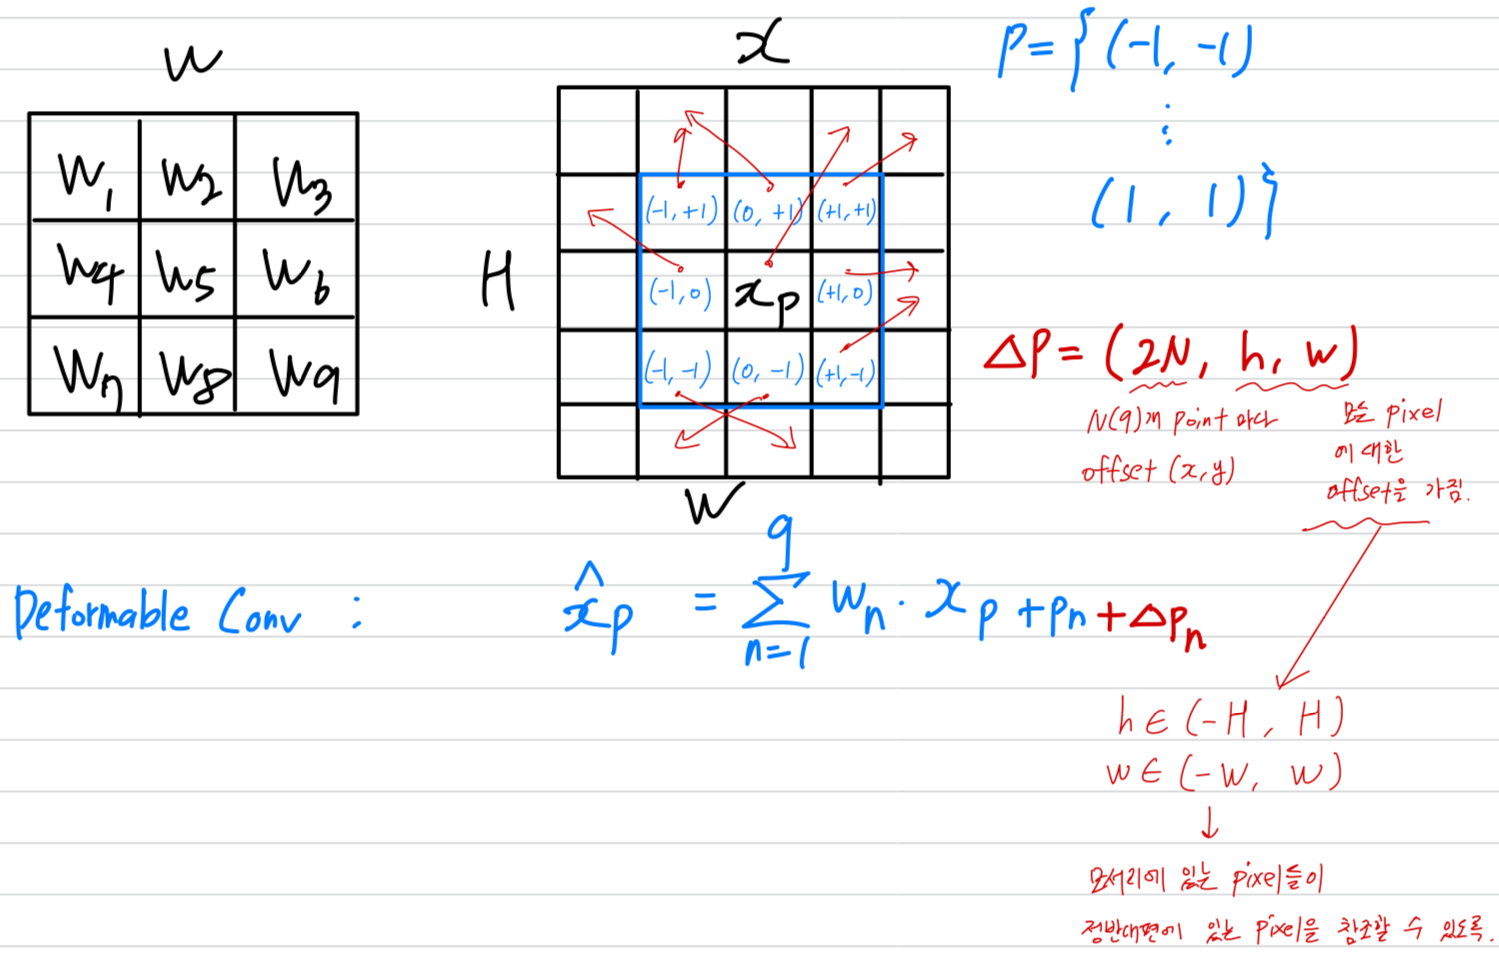 W
W1 W2 W3
W4 W5 W6
W7 W8 W9
x
H
(-1, +1) (0, +1) (+1, +1)
(-1, 0) xp (+1, 0)
(-1, -1) (0, -1) (+1, -1)
W
P = { (-1, -1)
⋮
(1, 1) }
ΔP = (2N, h, w)
N(9)개 point 마다
offset (x, y)
모든 pixel
에 대한
offset을 가짐.
Deformable Conv : x̂p = Σ n=1 9 Wn · xp+pn+Δpn
h ∈ (-H, H)
w ∈ (-W, W)
↓
모서리에 있는 pixel들이
정반대편에 있는 pixel을 참조할 수 있도록.